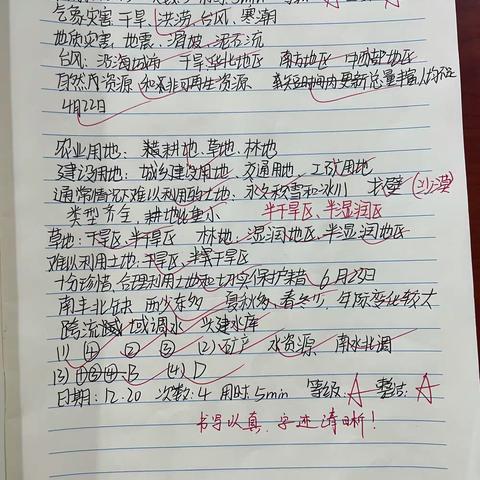 气象灾害 干旱、洪涝、台风、寒潮
地质灾害 地震、滑坡、泥石流
台风：沿海城市 干旱华北地区 南方地区 中西部地区
自然内资源 和非可再生资源 较短时间内更新总量丰富人均不足
4月22日
农业用地：耕地、草地、林地
建设用地：城乡建设用地、交通用地、工矿用地
通常情况难以利用的土地：永久积雪和冰川 戈壁（沙漠）
类型齐全，耕地比重小 半干旱区、半湿润区
草地：干旱区、半干旱区 林地：湿润地区、半湿润地区
难以利用土地：干旱区、半干旱区
十分珍惜、合理利用土地和切实保护耕 6月25日
南丰北缺 东多 夏秋多，春冬少，年际变化较大
跨流域调水 兴建水库
(1) ④ ② ③ (2) 矿产 水资源 南水北调
(3) ①③④ B (4) D
日期：12.20 次数：4 用时：5min 等级：A 整洁：A
书写认真，字迹清晰！